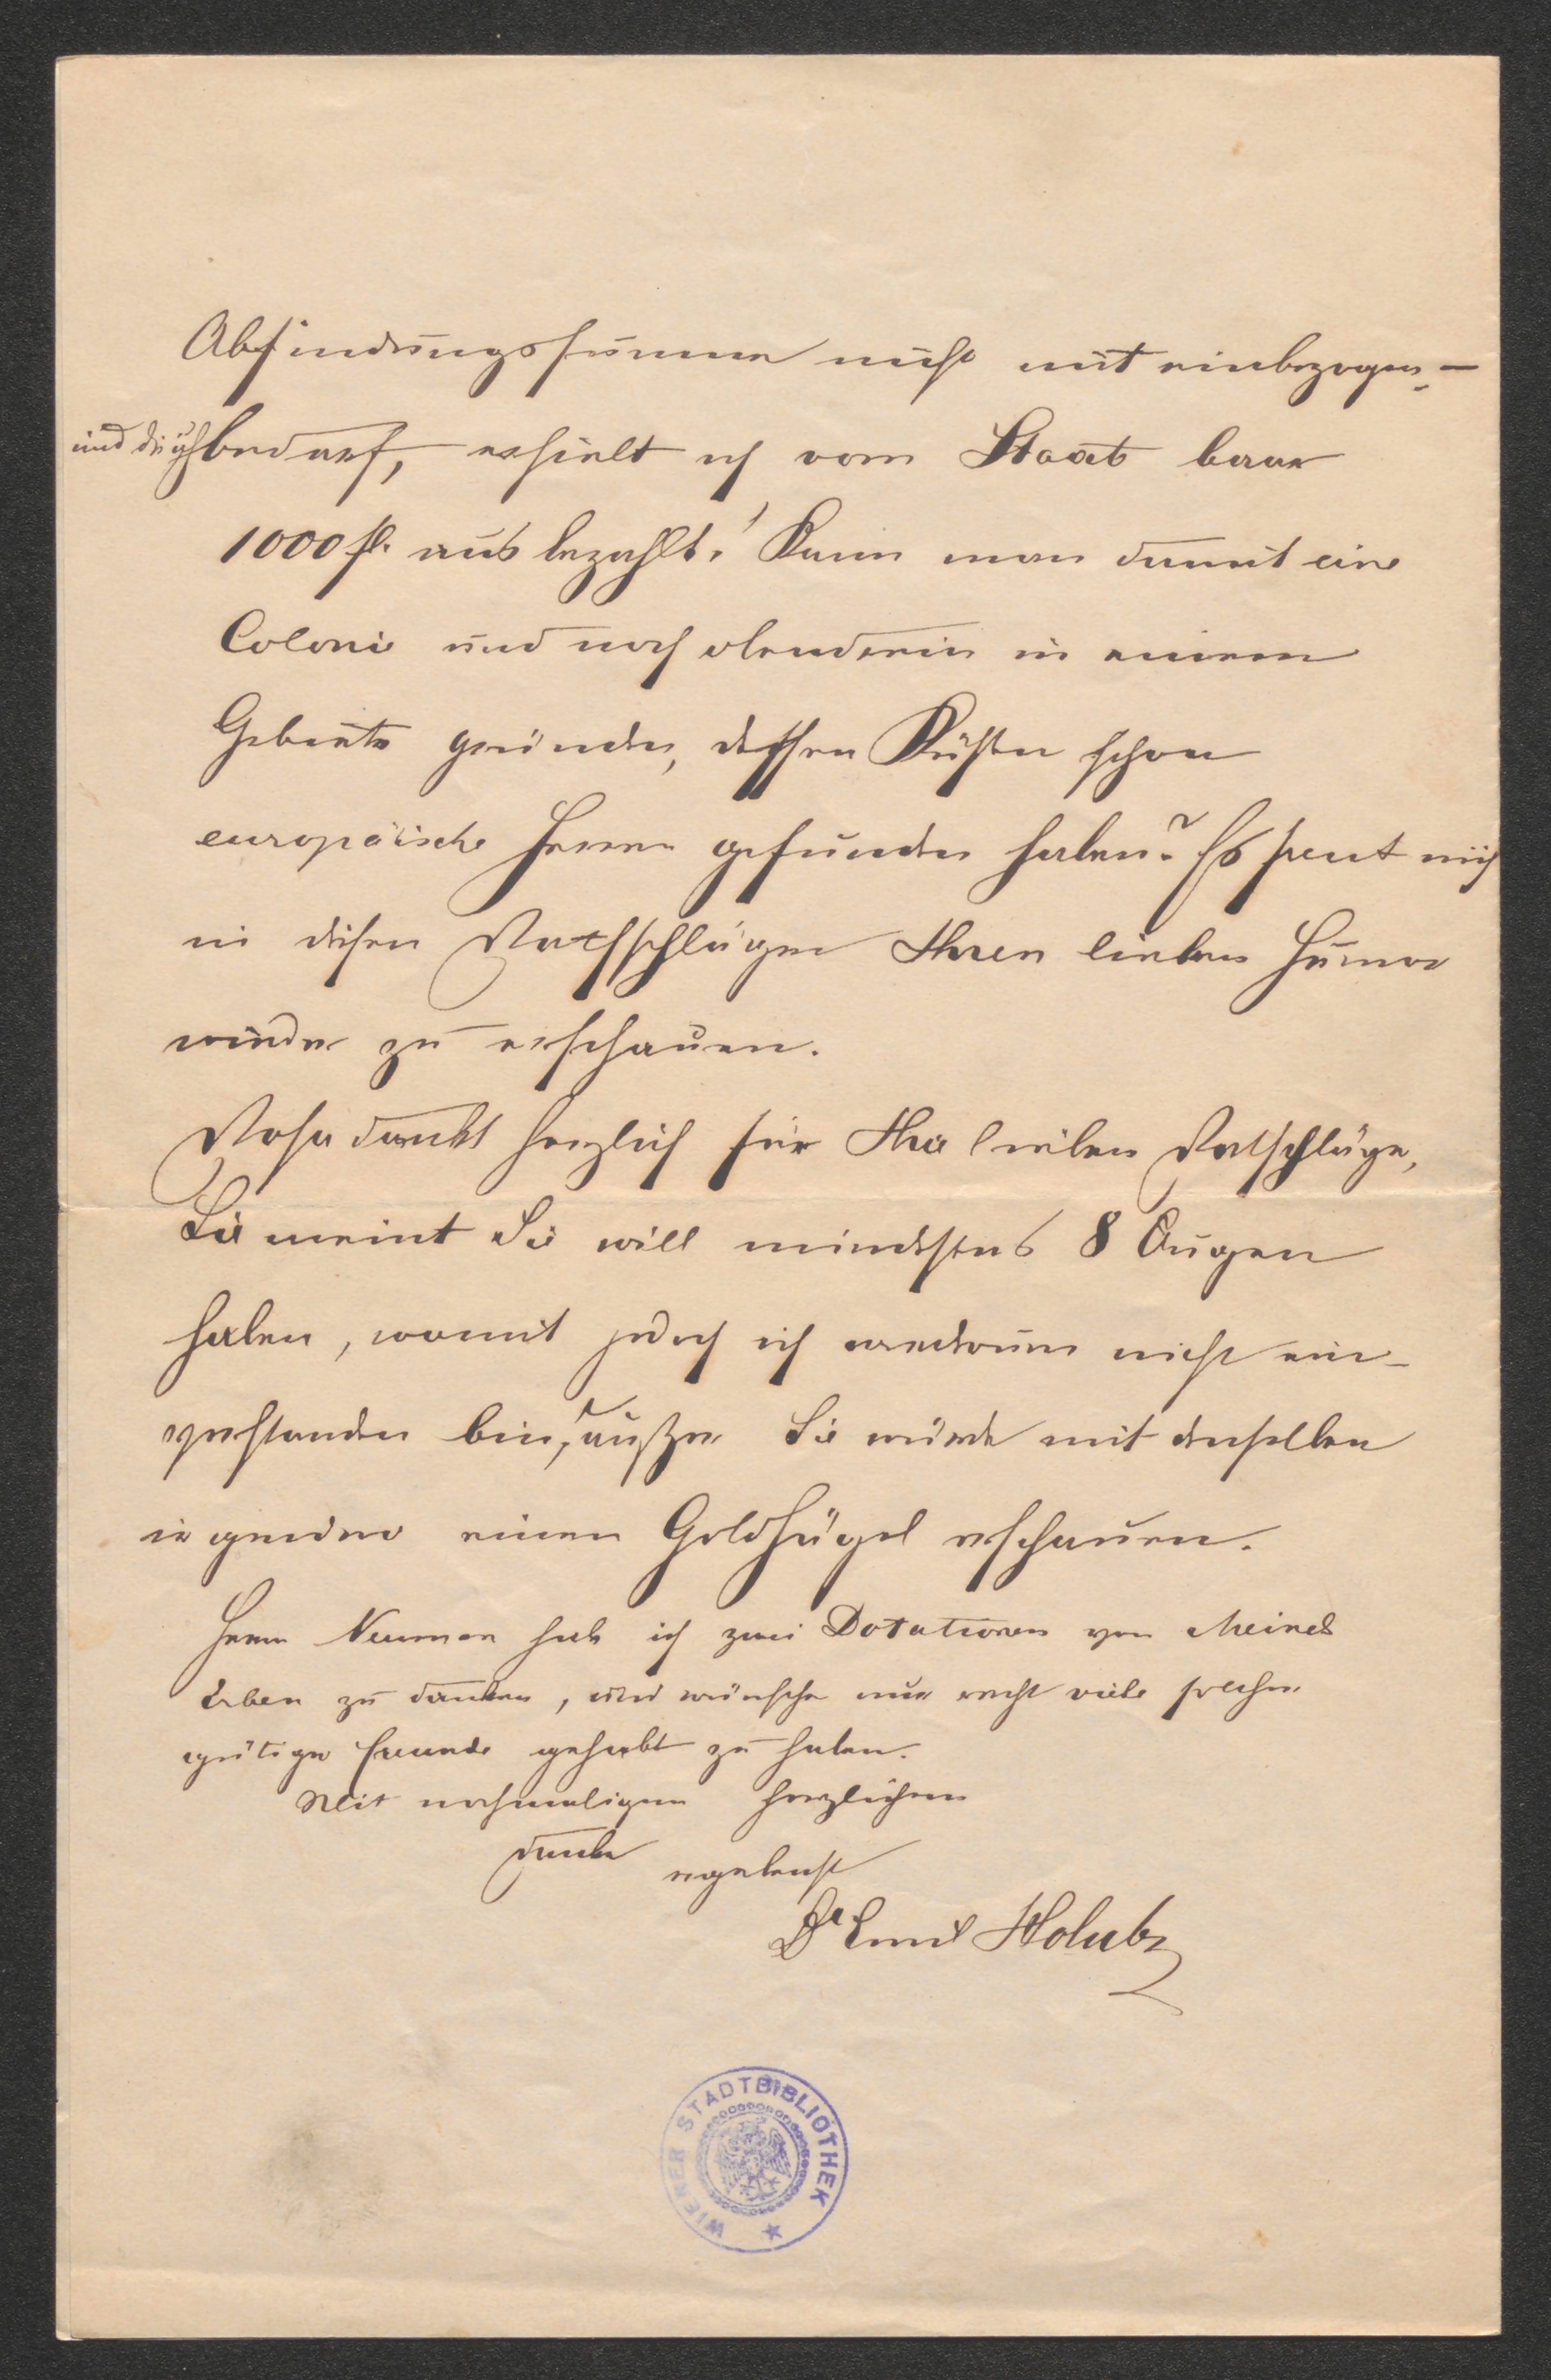 Abfindungssumme nicht mit einbezogen –
und die ich bedarf, erhielt ich vom Staat baar
1000 fl. ausbezahlt! Kann man damit eine
Colonie und noch obendrein in einem
Gebiete gründen, dessen Küsten schon
europäische Herren gefunden haben? Es freut mich
in diesen Rathschlägen Ihren lieben Humor
wieder zu erschauen.
Rosa dankt herzlich für Ihre lieben Ratschläge,
Sie meint Sie will mindestens 8 Augen
haben, womit jedoch ich wiederum nicht ein-
verstanden bin, außer Sie würde mit denselben
irgendwo einen Goldhügel erschauen.
Herrn Neuman habe ich zwei Dotationen von Meinl's
Erben zu danken, und wünsche nur recht viele solcher
gütiger Freunde gehabt zu haben.
Mit nochmaligem herzlichem
Danke ergebenst
Dr Emil Holub
WIENER STADTBIBLIOTHEK